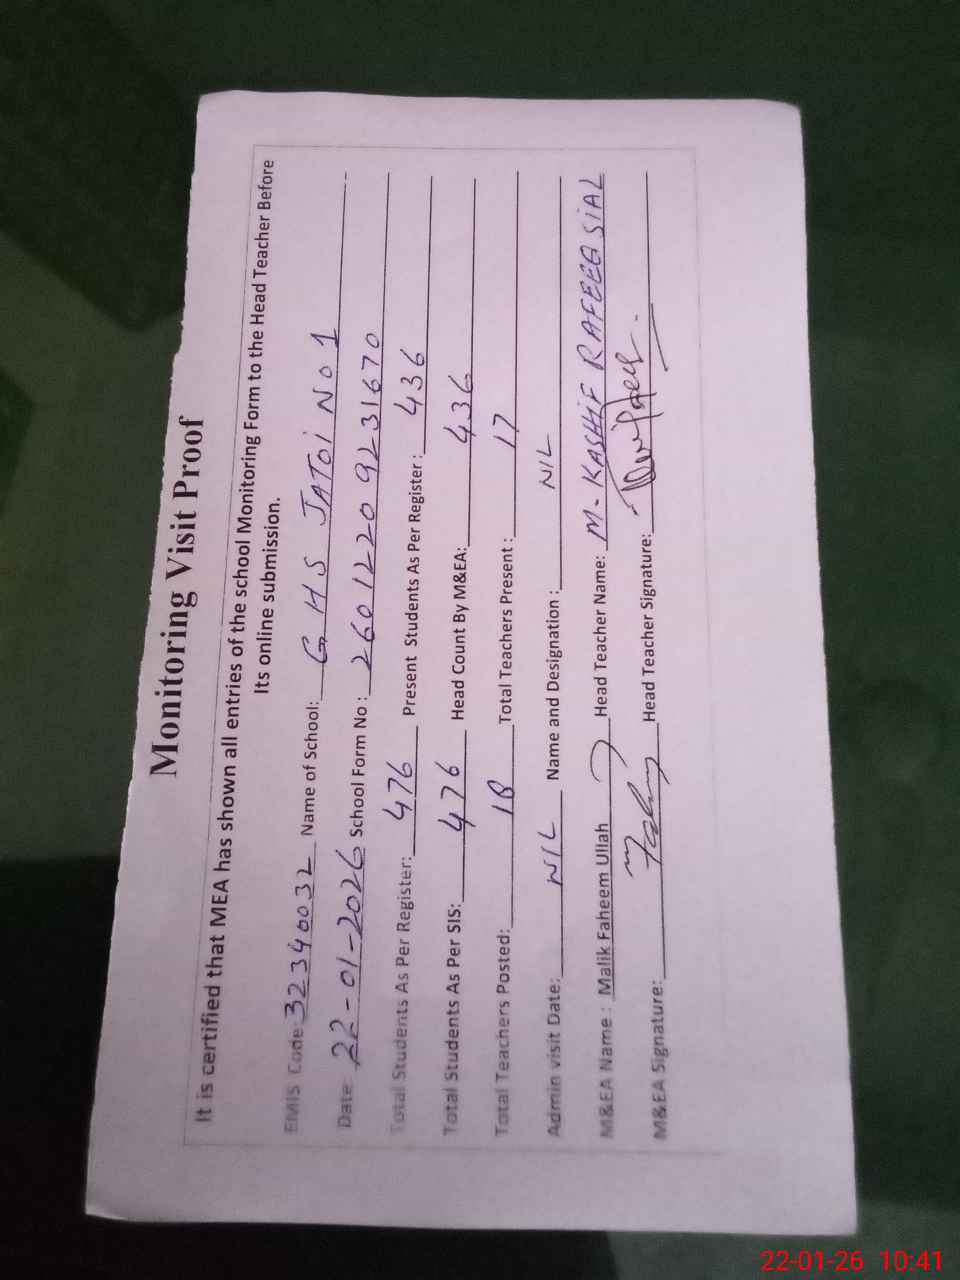 Monitoring Visit Proof
It is certified that MEA has shown all entries of the school Monitoring Form to the Head Teacher Before
Its online submission.
EMIS Code: 32340032 Name of School: G H S JATOI No 1
Date: 22-01-2026 School Form No : 26012209231670
Total Students As Per Register: 476 Present Students As Per Register : 436
Total Students As Per SIS: 476 Head Count By M&EA: 436
Total Teachers Posted: 18 Total Teachers Present : 17
Admin visit Date: NIL Name and Designation : NIL
M&EA Name : Malik Faheem Ullah Head Teacher Name: M. KASHIF RAFEEQ SIAL
M&EA Signature: Head Teacher Signature:
22-01-26 10:41